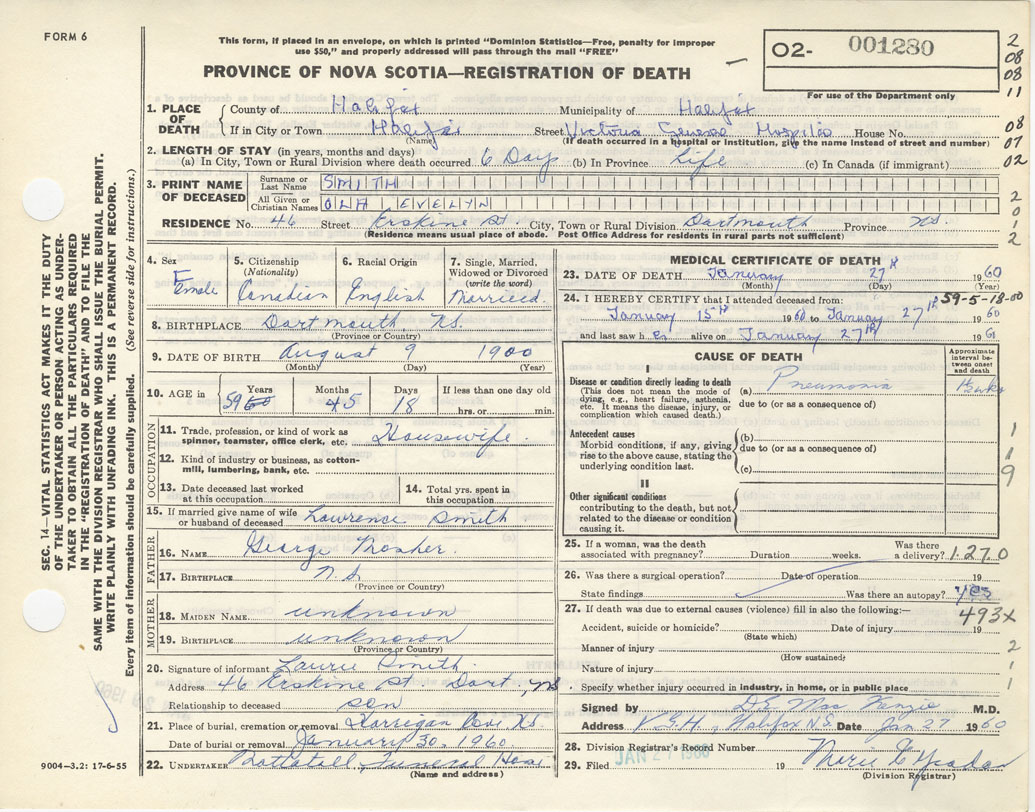 FORM 6
This form, if placed in an envelope, on which is printed "Dominion Statistics—Free, penalty for improper
use $50," and properly addressed will pass through the mail "FREE"
PROVINCE OF NOVA SCOTIA—REGISTRATION OF DEATH
O2- 001280
For use of the Department only
2
08
08
11
08
07
02
2
0
1
2
SEC. 14—VITAL STATISTICS ACT MAKES IT THE DUTY
OF THE UNDERTAKER OR PERSON ACTING AS UNDER-
TAKER TO OBTAIN ALL THE PARTICULARS REQUIRED
IN THE "REGISTRATION OF DEATH" AND TO FILE THE
SAME WITH THE DIVISION REGISTRAR WHO SHALL ISSUE THE BURIAL PERMIT.
WRITE PLAINLY WITH UNFADING INK. THIS IS A PERMANENT RECORD.
Every item of information should be carefully supplied. (See reverse side for instructions.)
1. PLACE OF DEATH County of Halifax Municipality of Halifax
If in City or Town Halifax Street Victoria General Hospital House No.
(Name) (If death occurred in a hospital or Institution, give the name instead of street and number)
2. LENGTH OF STAY (in years, months and days)
(a) In City, Town or Rural Division where death occurred 6 Days (b) In Province Life (c) In Canada (if immigrant)
3. PRINT NAME OF DECEASED Surname or Last Name SMITH
All Given or Christian Names EVELYN
RESIDENCE No. 46 Street Erskine St. City, Town or Rural Division Dartmouth Province NS.
(Residence means usual place of abode. Post Office Address for residents in rural parts not sufficient)
4. Sex Female
5. Citizenship (Nationality) Canadian
6. Racial Origin English
7. Single, Married, Widowed or Divorced (write the word) Married.
8. BIRTHPLACE Dartmouth NS.
(Province or Country)
9. DATE OF BIRTH August 9 1900
(Month) (Day) (Year)
10. AGE in Years 59 60 Months 45 Days 18 If less than one day old
hrs. or min.
OCCUPATION
11. Trade, profession, or kind of work as
spinner, teamster, office clerk, etc. Housewife.
12. Kind of industry or business, as cotton-
mill, lumbering, bank, etc.
13. Date deceased last worked at this occupation
14. Total yrs. spent in this occupation
15. If married give name of wife
or husband of deceased Lawrence Smith
FATHER
16. NAME George Mosher.
17. BIRTHPLACE N.S.
(Province or Country)
MOTHER
18. MAIDEN NAME unknown
19. BIRTHPLACE unknown
(Province or Country)
20. Signature of informant Laurie Smith.
Address 46 Erskine St. Dart, NS
Relationship to deceased son
21. Place of burial, cremation or removal NS.
Date of burial or removal January 30, 1960.
22. UNDERTAKER Funeral Home
(Name and address)
9004-3.2: 17-6-55
MEDICAL CERTIFICATE OF DEATH
23. DATE OF DEATH January 27th 1960
(Month) (Day) (Year)
24. I HEREBY CERTIFY that I attended deceased from: 59-5-18-00
January 15th 1960 to January 27th 1960
and last saw h er alive on January 27th 19
CAUSE OF DEATH
Approximate interval between onset and death
I
Disease or condition directly leading to death
(This does not mean the mode of dying, e.g., heart failure, asthenia, etc. It means the disease, injury, or complication which caused death.)
(a) Pneumonia
due to (or as a consequence of)
Antecedent causes
Morbid conditions, if any, giving rise to the above cause, stating the underlying condition last.
(b)
due to (or as a consequence of)
(c)
II
Other significant conditions
contributing to the death, but not related to the disease or condition causing it.
1
1
9
25. If a woman, was the death
associated with pregnancy? Duration weeks. Was there a delivery? 1270
26. Was there a surgical operation? Date of operation 19
State findings Was there an autopsy? yes
27. If death was due to external causes (violence) fill in also the following:— 493X
Accident, suicide or homicide? Date of injury 19
(State which)
Manner of injury 2
(How sustained)
Nature of injury 1
Specify whether injury occurred in industry, in home, or in public place 1
Signed by D.E. Mac Kenzie M.D.
Address V.G.H., Halifax N.S. Date Jan 27 1960
28. Division Registrar's Record Number
29. Filed JAN 27 1960 19
(Division Registrar)